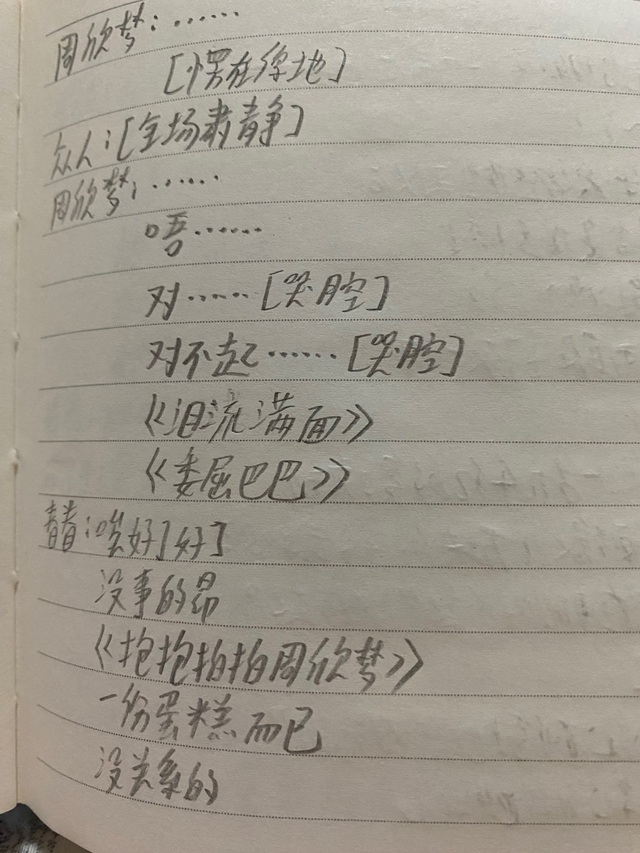 周欣梦：……
[愣在原地]
众人：[全场肃静]
周欣梦：……
唔……
对……[哭腔]
对不起……[哭腔]
《泪流满面》
《委屈巴巴》
青青：哎好了好了
没事的昂
《抱抱拍拍周欣梦》
一份蛋糕而已
没关系的